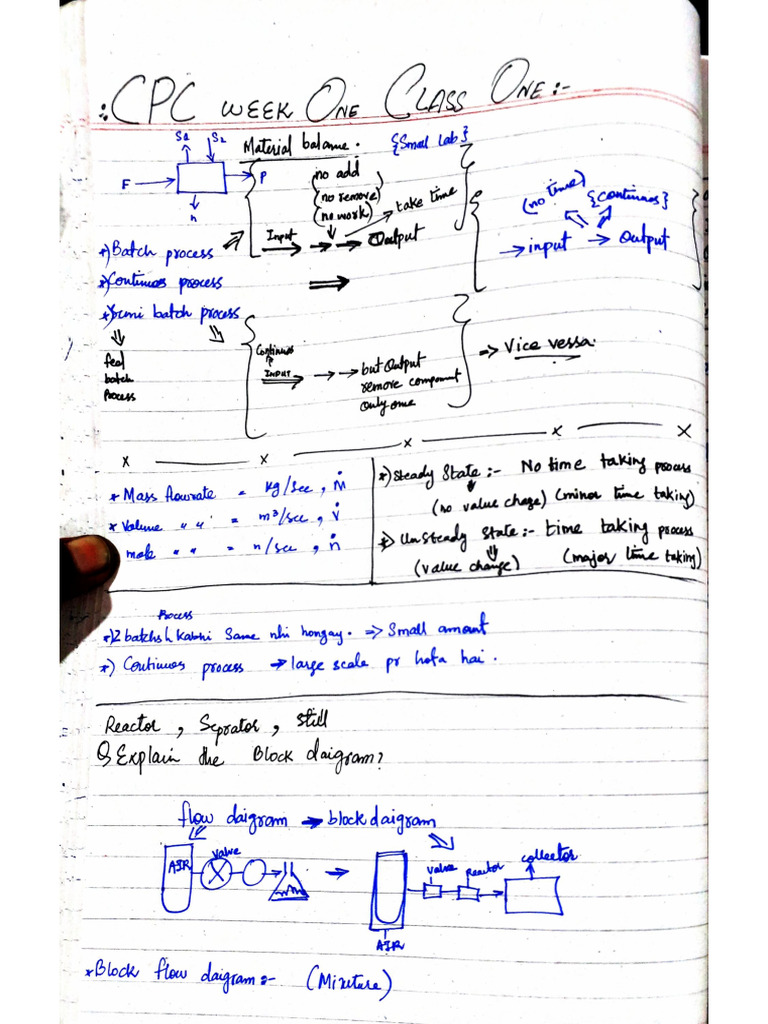 :. CPC WEEK ONE CLASS ONE :-
S1 S2
Material balance. {Small lab}
F P
no add
(no remove)
(no work)
take time
Input Output
(no time) {Continuos}
input Output
*) Batch process
*) Continuos process
*) Semi batch process
fed
batch
Process
Continuos
INPUT
but Output
remove component
Only one
Vice vessa.
x x x x x
* Mass flowrate = kg/sec , ṁ
* Volume " " = m³/sec , v̇
mole " " = n/sec , ṅ
*) Steady State :- No time taking process
(no value chage) (minor time taking)
*) UnSteady State :- time taking process
(value change) (major time taking)
Process
*) 2 batchs k kabhi Same nhi hongay. => Small amount
*) Continuos process → large scale pr hota hai .
Reactor , Seprator , Still
Q Explain the Block daigram?
flow daigram → block daigram
AIR valve
valve reactor collector
AIR
* Block flow daigram :- (Mixture)